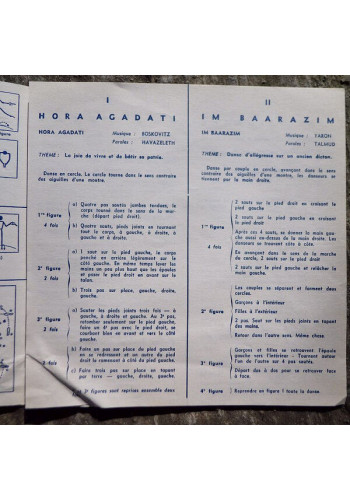 I
HORA AGADATI
HORA AGADATI Musique : BOSKOVITZ
Paroles : HAVAZELETH
THEME : La joie de vivre et de bâtir sa patrie.
Danse en cercle. Le cercle tourne dans le sens contraire
des aiguilles d'une montre.
1re figure
4 fois
a) Quatre pas sautés jambes tendues, le
corps tourné dans le sens de la mar-
che (départ pied droit).
b) Quatre sauts, pieds joints en tournant
le corps, à gauche, à droite, à
gauche, et à droite.
2e figure
4 fois
a) 1 saut sur le pied gauche, le corps
penché en arrière légèrement sur le
côté gauche. En même temps lever les
mains un peu plus haut que les épaules
et poser le pied droit en avant sur le
talon.
b) Trois pas sur place, gauche, droite,
gauche.
3e figure
2 fois
a) Sauter les pieds joints trois fois — à
gauche, à droite et gauche. Au 3e pas,
retomber seulement sur le pied gauche,
faire un 4e pas avec le pied droit, se
courbant bien en avant et vers le côté
gauche.
2 fois
b) Faire un pas sur place du pied gauche
en se redressant et un autre du pied
droit le ramenant à côté du pied gauche.
c) Faire trois pas sur place en tapant
par terre — gauche, droite, gauche.
3e figures sont reprises ensemble deux
II
IM BAARAZIM
IM BAARAZIM Musique : YARON
Paroles : TALMUD
THEME : Danse d'allégresse sur un ancien dicton.
Danse par couple en cercle, avançant dans le sens
contraire des aiguilles d'une montre, les danseurs se
tiennent par la main droite.
1re figure
4 fois
2 sauts sur le pied droit en croisant le
pied gauche
2 sauts sur le pied gauche en croisant
le pied droit
Après ces 4 sauts, se donner la main gau-
che aussi au-dessus de la main droite. Les
danseurs se trouvent côte à côte.
En avançant dans le sens de la marche
du cercle, 2 sauts sur le pied droit
2 sauts sur le pied gauche et relâcher la
main gauche.
2e figure
Les couples se séparent et forment deux
cercles.
Garçons à l'intérieur
Filles à l'extérieur
2 pas. Saut sur les pieds joints en tapant
des mains.
Retour dans l'autre sens. Même chose.
3e figure
Garçons et filles se retrouvent l'épaule
gauche vers l'intérieur - Tournent autour
l'un de l'autre 4 pas et saut.
Départ dos à dos pour se retrouver face
à face
4e figure Reprendre en figure 1 toute la danse.